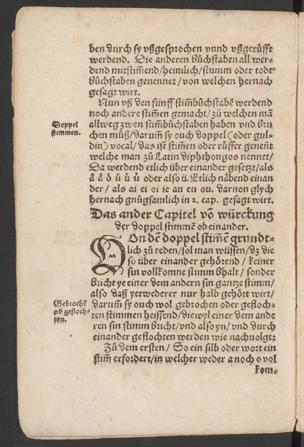 ben durch sy vßgesprochen vnnd vßgerüfft
werdend. Die anderen bůchstaben all wer-
dend mitstim̃end/heimlich/stumm oder todt
bůchstaben genennet/von welchen hernach
gesagt wirt.
Nun vß den fünff stim̃bůchstabẽ werdend
noch andere stim̃en gemacht/zů welchen mã
Doppel
stimmen.
allweg zwen stim̃bůchstaben haben vnd bru
chen můß/darum̃ sy ouch doppel (oder gul-
din) vocal/das ist stim̃en oder rüffer genent
welche man zů Latin diphthongos nennet/
Da werdend etlich über einander gesetzt/als
ander/als ai ei oi ie au eu ou. darvon glych
hernach gnůgsamlich in 2. cap. gesagt wirt.
Das ander Capitel võ würckung
der doppel stimmẽ ob einander.
VOn dẽ doppel stim̃ẽ grundt-
lich zů reden/sol man wüssen/dz die
so über einander gehörend/keiner
sin vollkomne stimm bhalt/sonder
bricht ye einer dem andern sin gantze stimm/
also daß yetwederer nur halb gehört wirt/
Gebrochẽ
od gestoch-
nen.
darum̃ sy ouch wol gebrochen oder gestoch-
en stimmen heissend/diewyl einer dem ande
ren sin stimm bricht/vnd also yn/vnd durch
einander gestochten werden wie nachuolgt:
Zů dem ersten/So ein silb oder wort ein
stim̃ erfordert/in welcher weder a noch o vol
kom-